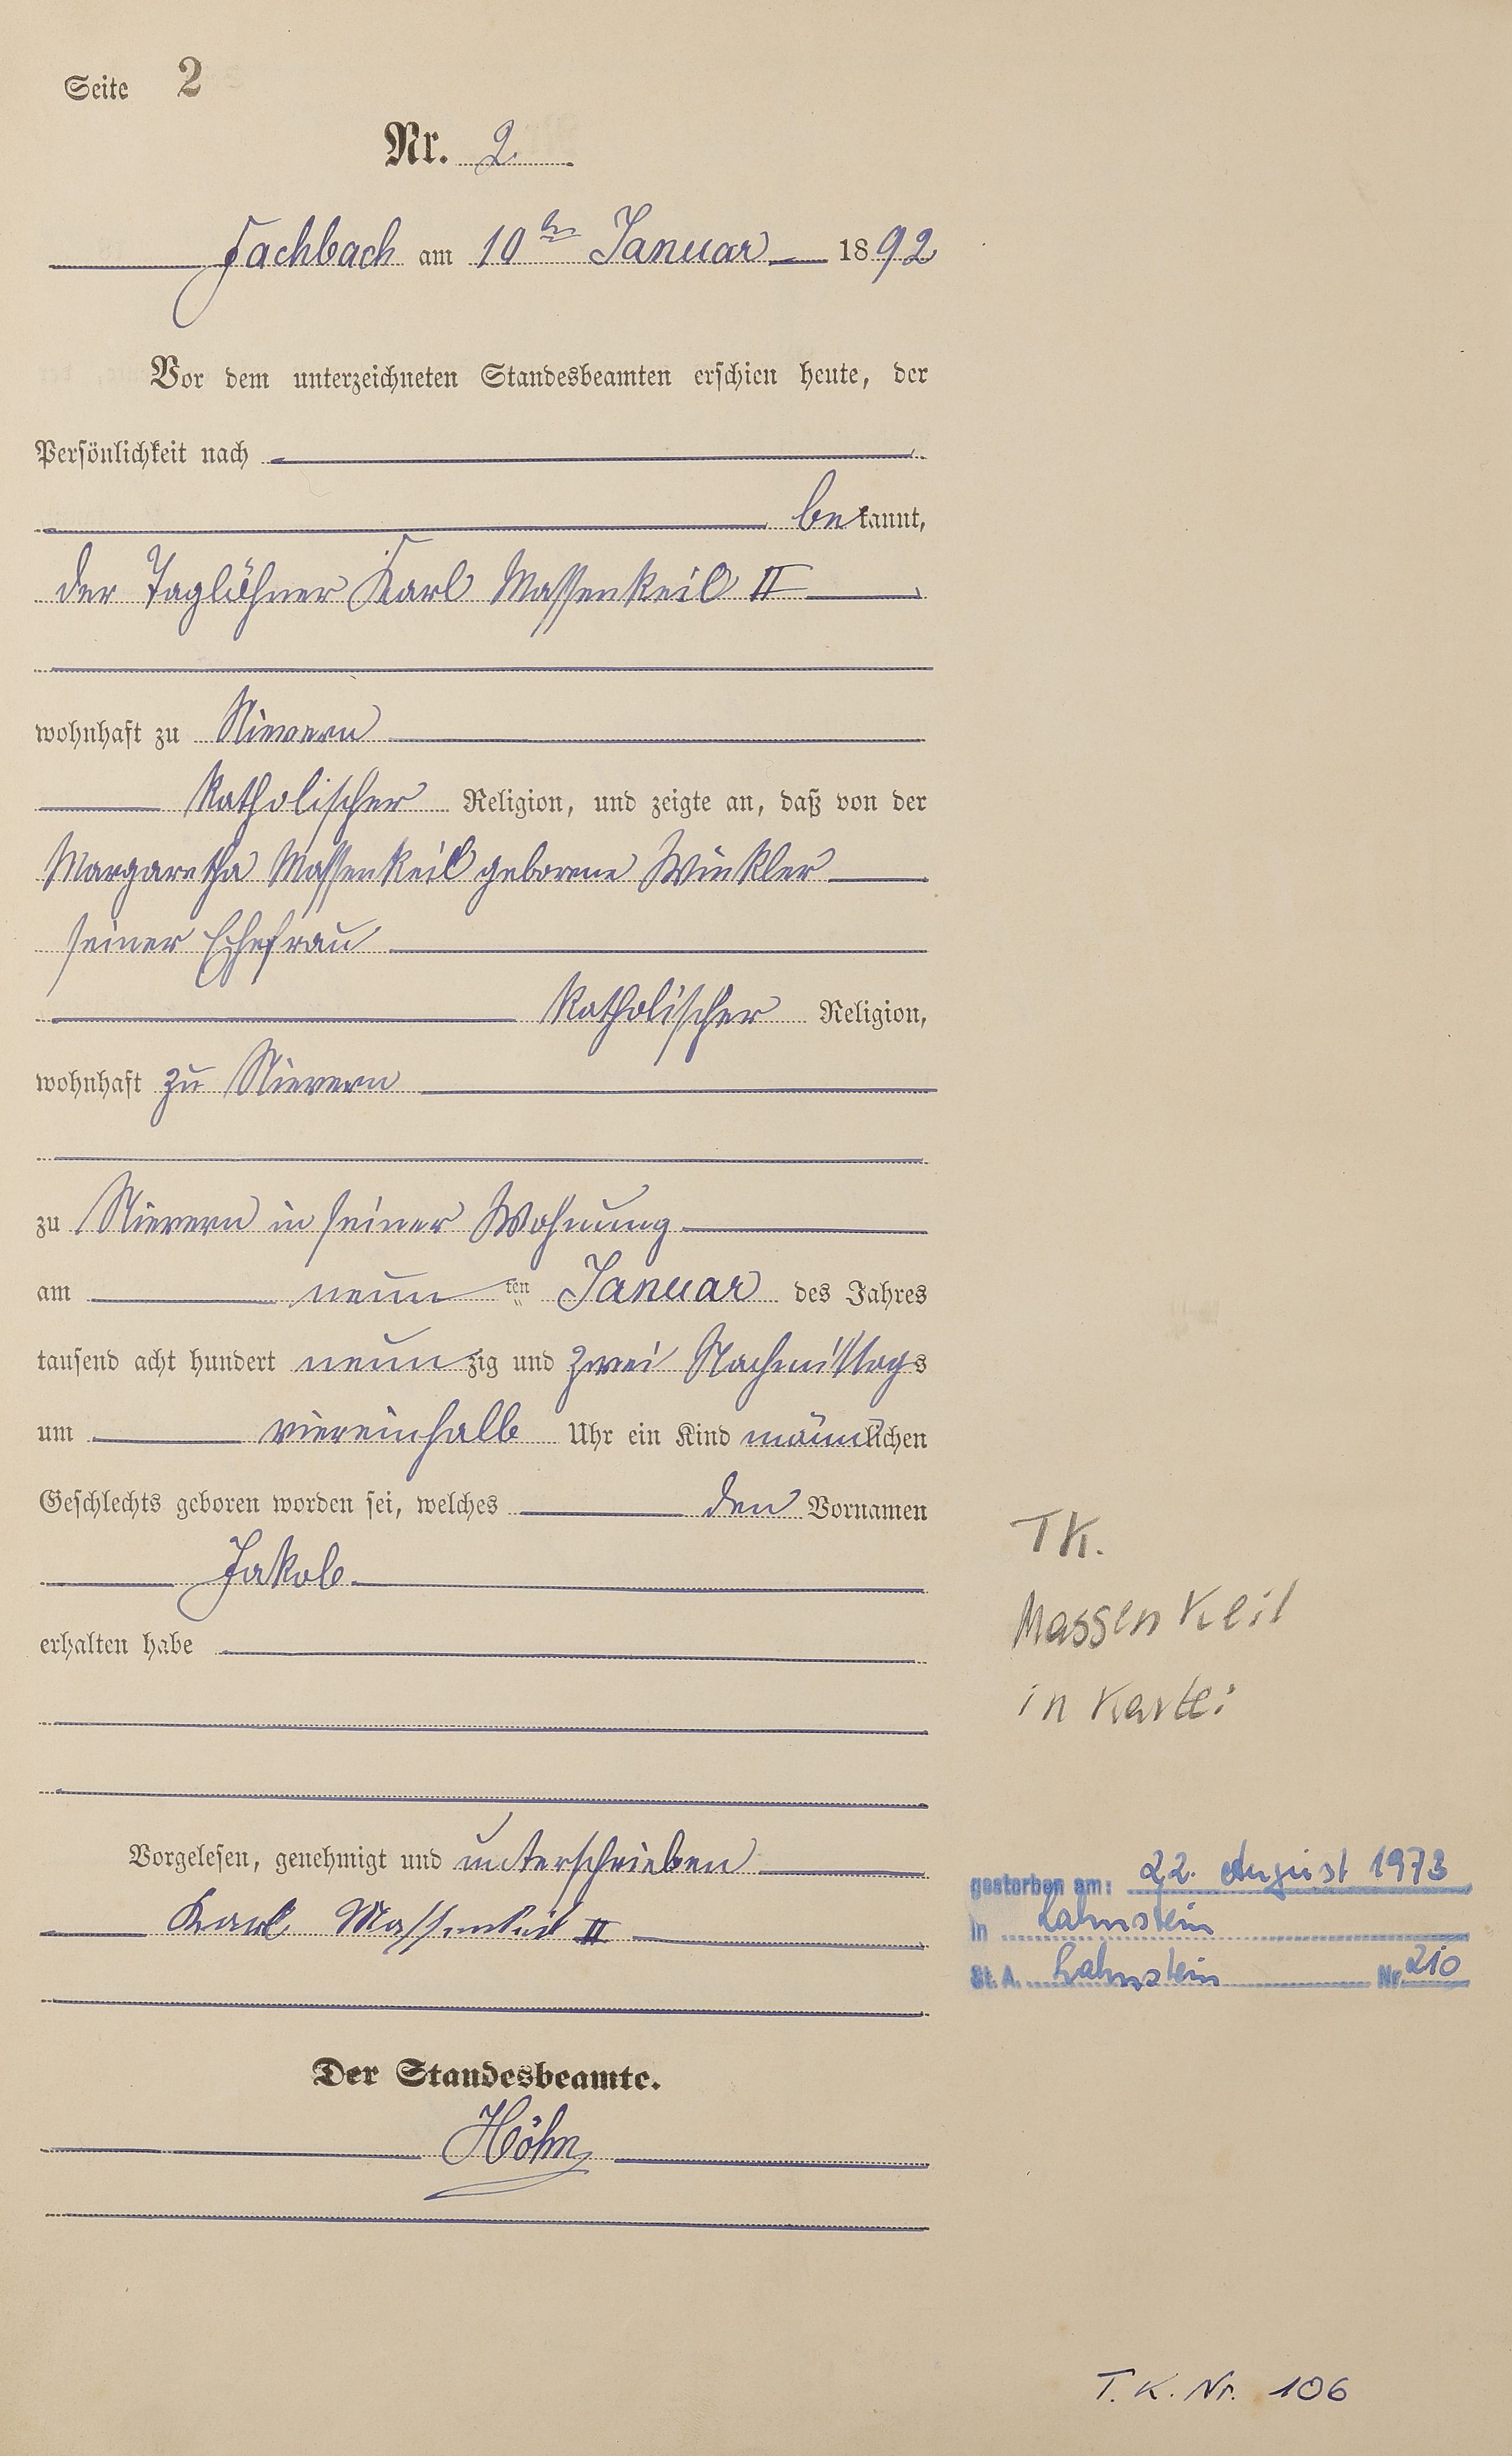 Seite 2
Nr. 2.
Fachbach am 10ten Januar 1892
Vor dem unterzeichneten Standesbeamten erschien heute, der
Persönlichkeit nach
bekannt,
der Taglöhner Karl Massenkeil II
wohnhaft zu Nievern
katholischer Religion, und zeigte an, daß von der
Margaretha Massenkeil geborene Winkler
seiner Ehefrau
katholischer Religion,
wohnhaft zu Nievern
zu Nievern in seiner Wohnung
am neun ten Januar des Jahres
tausend acht hundert neunzig und zwei Nachmittags
um viereinhalb Uhr ein Kind männlichen
Geschlechts geboren worden sei, welches den Vornamen
Jakob
erhalten habe
Vorgelesen, genehmigt und unterschrieben
Karl Massenkeil II
Der Standesbeamte.
Höhn
TK.
Massenkeil
in Kartei
gestorben am: 22. August 1973
in Lahnstein
St. A. Lahnstein Nr. 210
T. K. Nr. 106